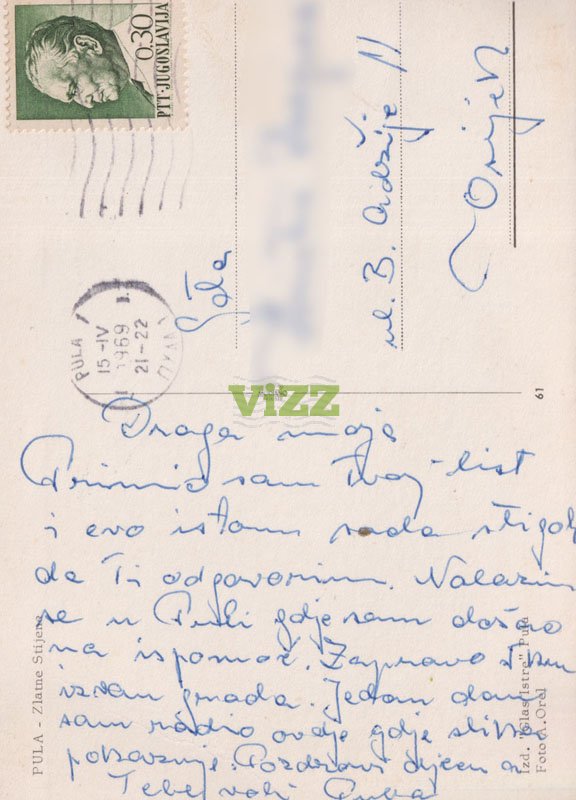 0:30
PTT-JUGOSLAVIJA
PULA
15-IV
1969
21-22
ul. B. Adžije 11
Osijek
61
VIZZ
Draga moja
Primio sam Tvoj list
i evo istom sada stigoh
da Ti odgovorim. Nalazim
se u Puli gdje sam došao
na ispomoć. Zapravo
izvan grada. Jedan dan
sam radio ovdje gdje slika
pokazuje. Pozdravi djecu a
Tebe voli
PULA - Zlatne Stijene
Izd. "Glas Istre" Pula
Foto A. Orel